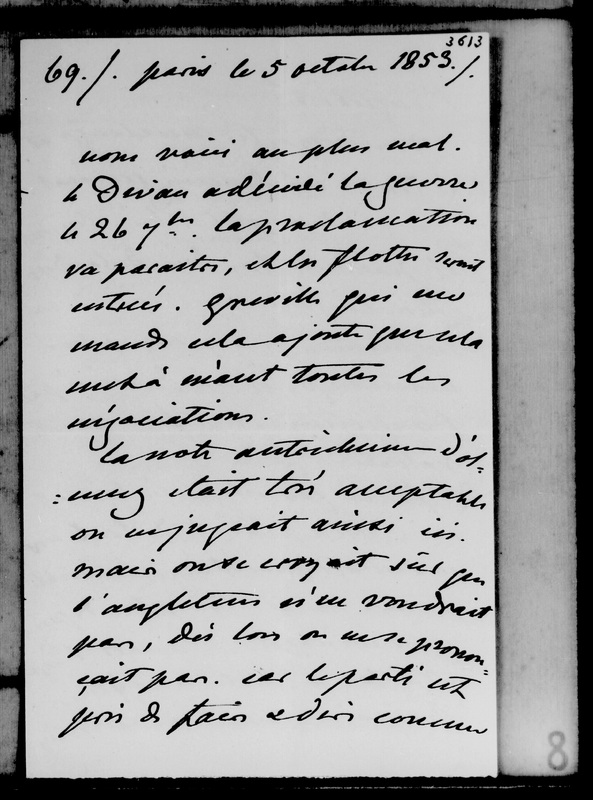 3613
69./. paris le 5 octobre 1853./.
nous voici au plus mal.
le Divan a décidé la guerre
le 26 7bre. la proclamation
va paraitre, et les flottes seront
entrées. Greville qui me
mande cela ajoute que cela
met à néant toutes les
négociations.
la note autrichienne d'ol-
=mug était très acceptable
on en jugeait ainsi ici.
mais on se croyait sûr que
l'angleterre n'en voudrait
pas, dès lors on ne se pronon=
çait pas. car le parti est
pris de faire & dire comme
8